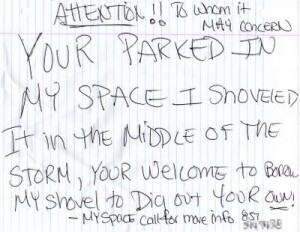 ATTENTION!! To whom it
MAY CONCERN
YOUR PARKED IN
MY SPACE I SHOVELED
It in the MIDDLE OF THE
STORM, YOUR WELCOME to Borrow
MY Shovel to Dig out YOUR OWN!
- MYSPACE call for more info 857